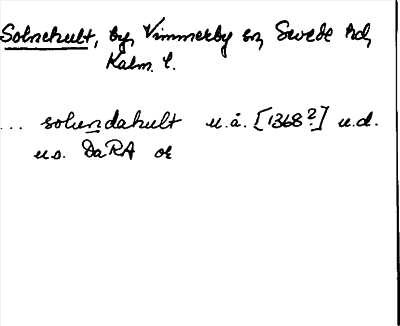 Solnehult, by, Vimmerby sn, Sevede hd,
Kalm. l.
... solundahult u.å. [1368?] u.d.
u.o. DaRA or